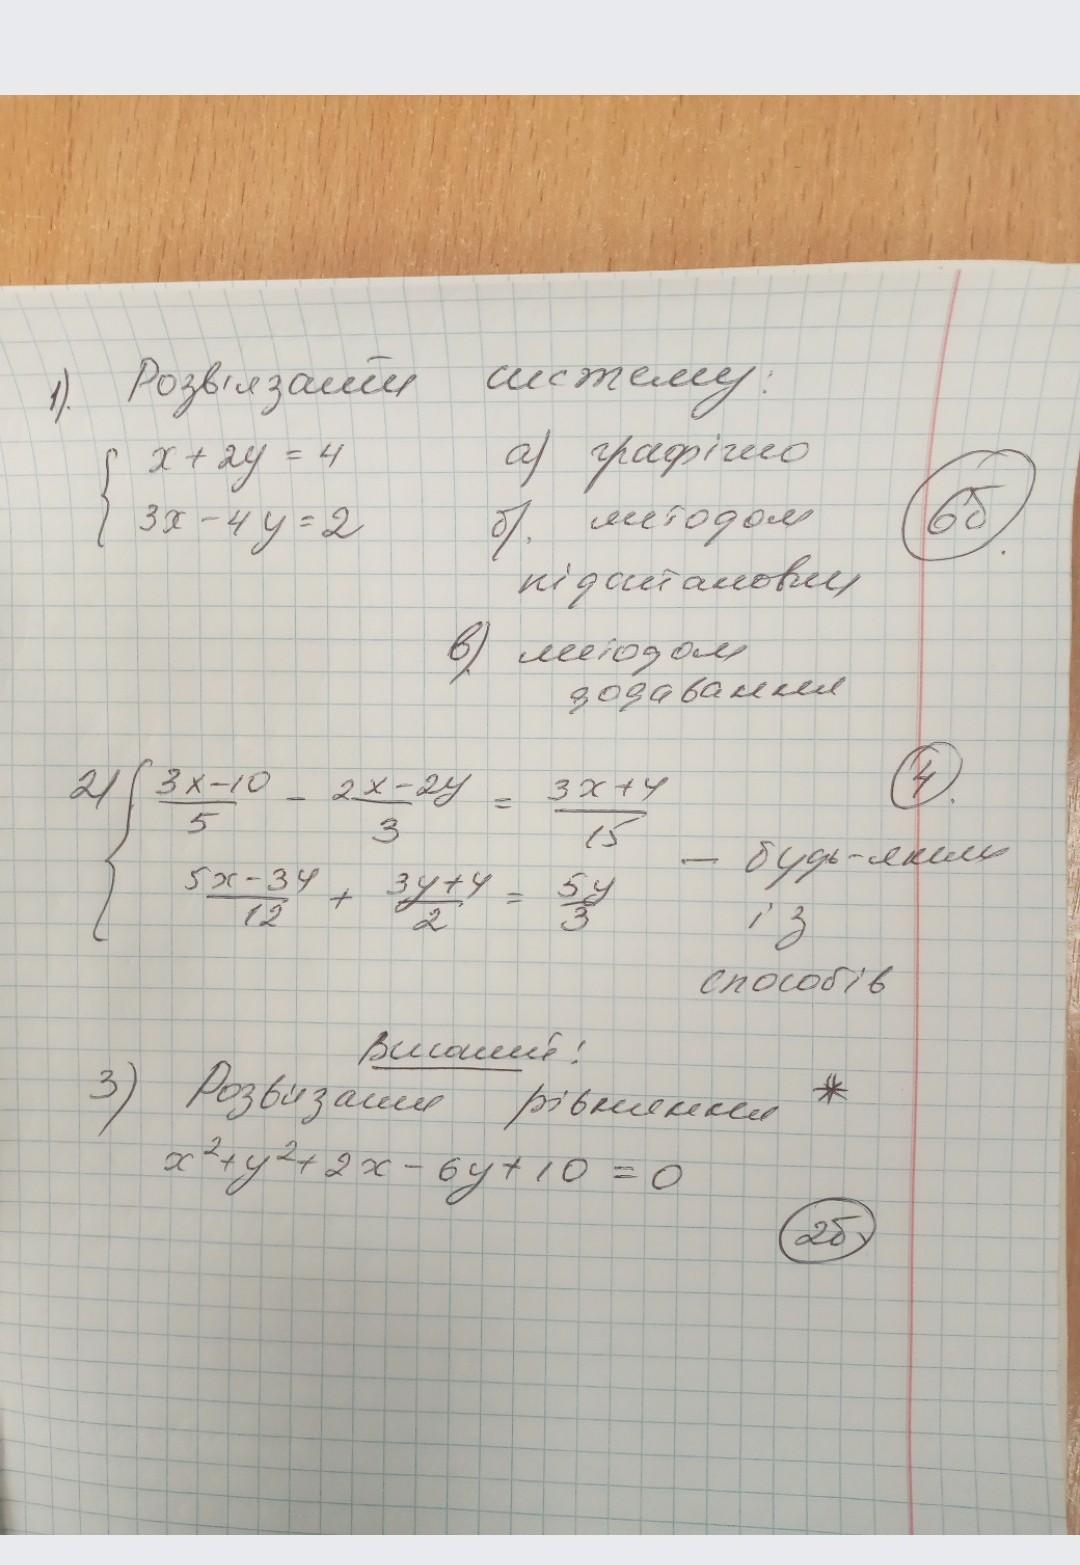 1). Розв'язати систему:
{ x + 2y = 4 а) графічно
3x - 4y = 2 б). методом 6б.
підстановки
в). методом
додавання
2) { (3x-10)/5 - (2x-2y)/3 = (3x+4)/15 4.
(5x-3y)/12 + (3y+4)/2 = 5y/3 — будь-яким
із
способів
Висший!
3) Розв'язати рівняння *
x²+y²+2x-6y+10=0
2б